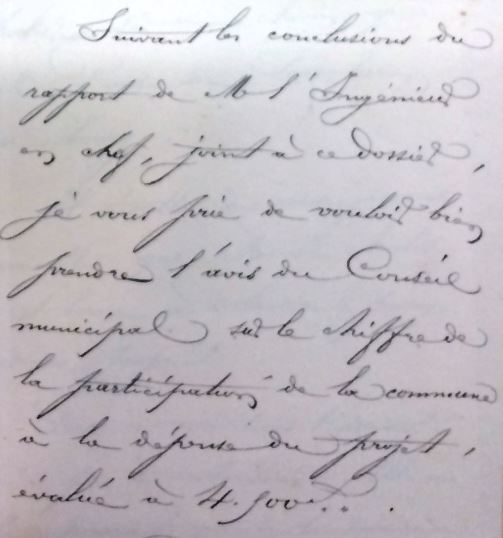 Suivant les conclusions du
rapport de M l'Ingénieur
en chef, joint à ce dossier,
je vous prie de vouloir bien
prendre l'avis du Conseil
municipal sur le chiffre de
la participation de la commune
à la dépense du projet,
évalué à